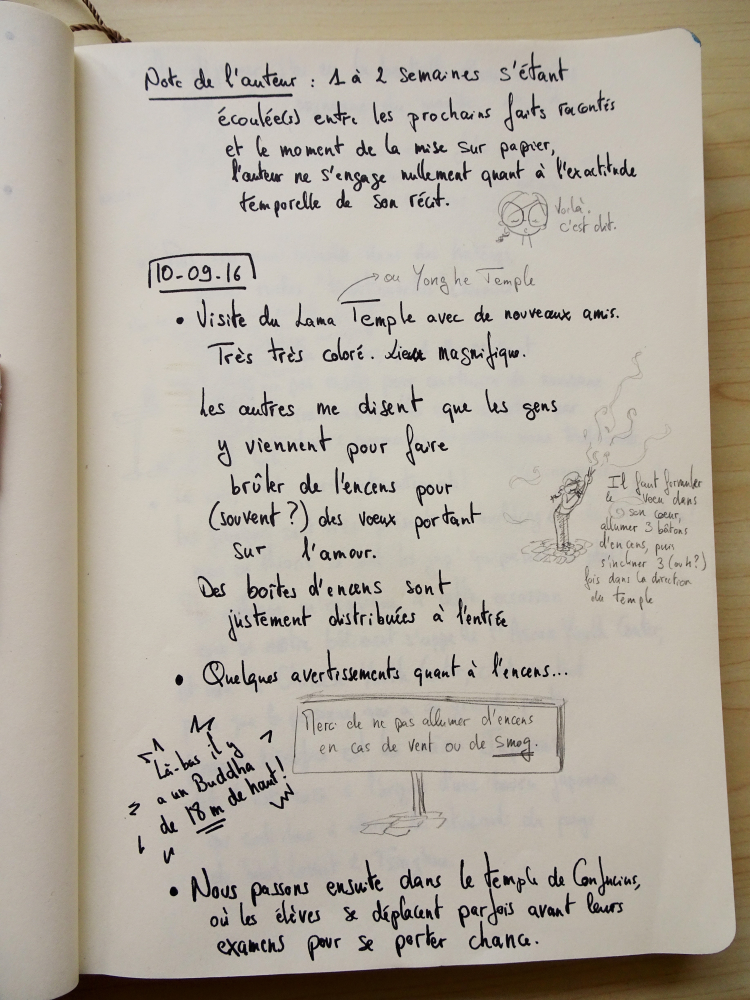 Note de l'auteur : 1 à 2 semaines s'étant
écoulée(s) entre les prochains faits racontés
et le moment de la mise sur papier,
l'auteur ne s'engage nullement quant à l'exactitude
temporelle de son récit.
Voilà.
C'est dit.
10-09.16
ou Yonghe Temple
• Visite du Lama Temple avec de nouveaux amis.
Très très coloré. Lieux magnifique.
Les autres me disent que les gens
y viennent pour faire
brûler de l'encens pour
(souvent ?) des voeux portant
sur l'amour.
Il faut formuler
le voeu dans
son coeur,
allumer 3 bâtons
d'encens, puis
s'incliner 3 (ou 4?)
fois dans la direction
du temple
Des boîtes d'encens sont
justement distribuées à l'entrée
• Quelques avertissements quant à l'encens...
Merci de ne pas allumer d'encens
en cas de vent ou de smog.
Là-bas il y
a un Buddha
de 18 m de haut !
• Nous passons ensuite dans le temple de Confucius,
où les élèves se déplacent parfois avant leurs
examens pour se porter chance.